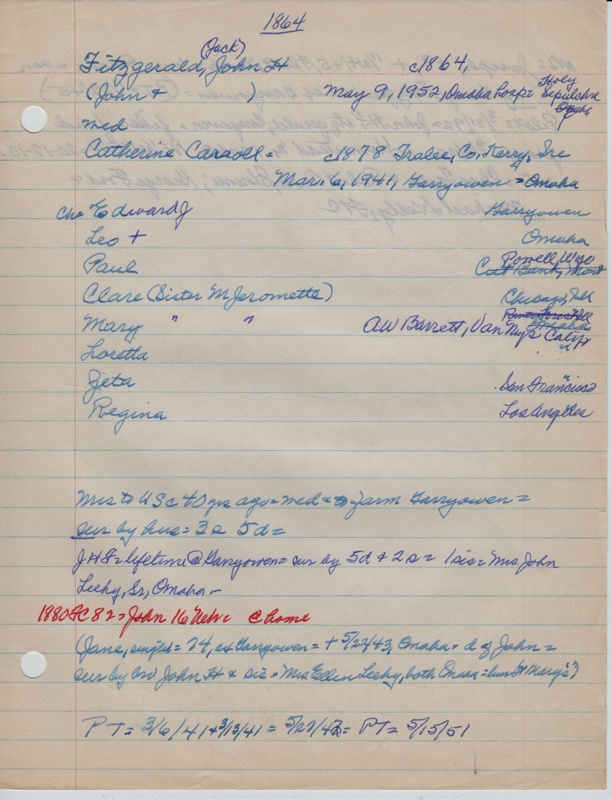 1864
(Jack)
Fitzgerald, John H c1864,
(John + ) May 9, 1952, Omaha Rosp= Holy Sepulchre Omaha
med
Catherine Carroll = c1878 Tralee, Co, Kerry, Ire
Mar. 6, 1941, Garryowen = Omaha
Ch= Edward J Garryowen
Leo + Omaha
Paul Powell, Wyo
Cut Bank, Mont
Clare (Sister M Jeromette) Chicago, Ill
Mary " " AW Barrett, Van Nuys Calif
Omaha
Loretta "
Zeta San Francisco
Regina Los Angeles
Mrs to USc 40 yrs ago = med & to farm Garryowen =
sur by hus = 3s 5d =
JHF = lifetime @ Garryowen = sur by 5d & 2s = 1 sis = Mrs John
Leehy, Sr, Omaha -
1880 FC 82 = John 16 Nebr= @ home
(Jane, = 74, ex Garryowen = + 5/22/43, Omaha = d of John =
sur by bro John H & sis = Mrs Ellen Leehy, both Omaha = bur St Mary's)
PT = 3/6/41 & 3/13/41 = 5/27/43 = PT = 5/15/51